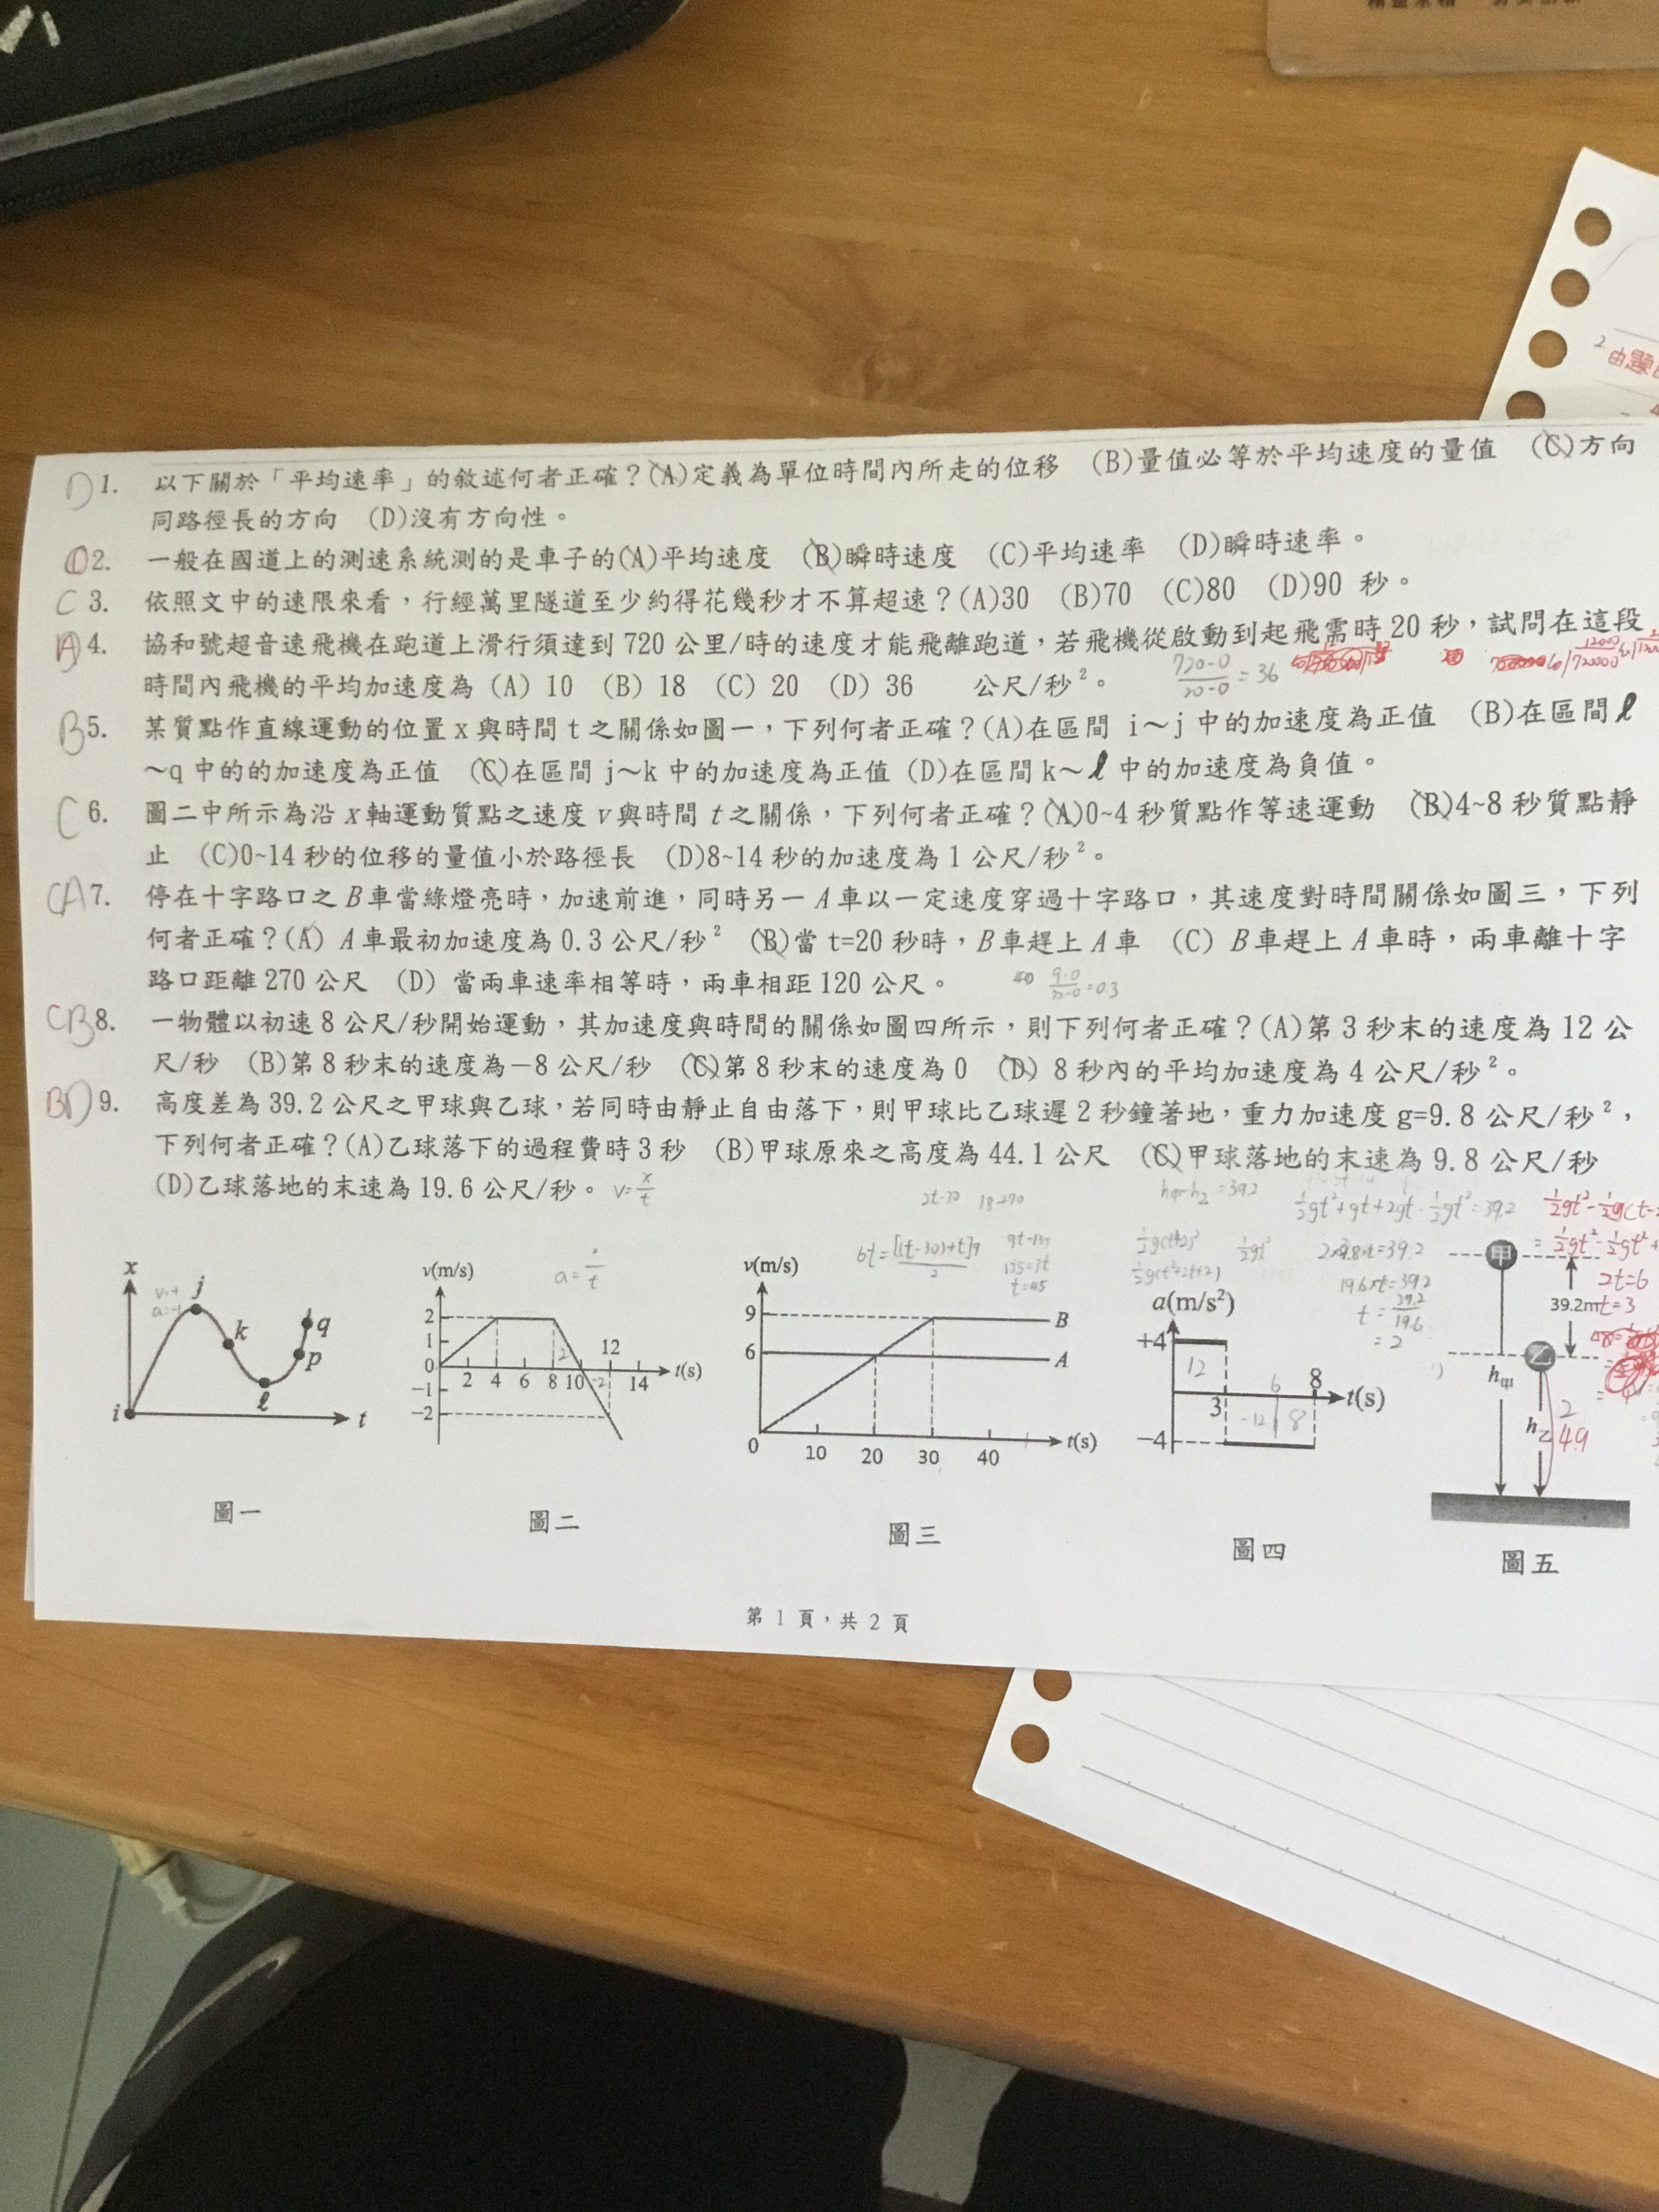 D 1. 以下關於「平均速率」的敘述何者正確？(A)定義為單位時間內所走的位移 (B)量值必等於平均速度的量值 (C)方向
同路徑長的方向 (D)沒有方向性。
D 2. 一般在國道上的測速系統測的是車子的(A)平均速度 (B)瞬時速度 (C)平均速率 (D)瞬時速率。
C 3. 依照文中的速限來看，行經萬里隧道至少約得花幾秒才不算超速？(A)30 (B)70 (C)80 (D)90 秒。
A 4. 協和號超音速飛機在跑道上滑行須達到 720 公里/時的速度才能飛離跑道，若飛機從啟動到起飛需時 20 秒，試問在這段
時間內飛機的平均加速度為 (A) 10 (B) 18 (C) 20 (D) 36 公尺/秒²。
720-0/20-0 = 36
B 5. 某質點作直線運動的位置 x 與時間 t 之關係如圖一，下列何者正確？(A)在區間 i～j 中的加速度為正值 (B)在區間 ℓ
～q 中的的加速度為正值 (C)在區間 j～k 中的加速度為正值 (D)在區間 k～ℓ 中的加速度為負值。
C 6. 圖二中所示為沿 x 軸運動質點之速度 v 與時間 t 之關係，下列何者正確？(A)0~4 秒質點作等速運動 (B)4~8 秒質點靜
止 (C)0~14 秒的位移的量值小於路徑長 (D)8~14 秒的加速度為 1 公尺/秒²。
CA 7. 停在十字路口之 B 車當綠燈亮時，加速前進，同時另一 A 車以一定速度穿過十字路口，其速度對時間關係如圖三，下列
何者正確？(A) A 車最初加速度為 0.3 公尺/秒² (B)當 t=20 秒時，B 車趕上 A 車 (C) B 車趕上 A 車時，兩車離十字
路口距離 270 公尺 (D) 當兩車速率相等時，兩車相距 120 公尺。
CB 8. 一物體以初速 8 公尺/秒開始運動，其加速度與時間的關係如圖四所示，則下列何者正確？(A)第 3 秒末的速度為 12 公
尺/秒 (B)第 8 秒末的速度為－8 公尺/秒 (C)第 8 秒末的速度為 0 (D) 8 秒內的平均加速度為 4 公尺/秒²。
BD 9. 高度差為 39.2 公尺之甲球與乙球，若同時由靜止自由落下，則甲球比乙球遲 2 秒鐘著地，重力加速度 g=9.8 公尺/秒²，
下列何者正確？(A)乙球落下的過程費時 3 秒 (B)甲球原來之高度為 44.1 公尺 (C)甲球落地的末速為 9.8 公尺/秒
(D)乙球落地的末速為 19.6 公尺/秒。 v=x/t
x
j
k
q
p
ℓ
i
t
圖一
v(m/s)
2
1
0
-1
-2
2 4 6 8 10 12 14
t(s)
圖二
v(m/s)
9
6
0
10 20 30 40
t(s)
B
A
圖三
a(m/s²)
+4
-4
3
8
t(s)
12
6
-12
8
圖四
甲
乙
39.2m
h甲
h乙
2
4.9
2t=6
t=3
19.6t=39.2
t=39.2/19.6
=2
圖五
第 1 頁，共 2 頁
2.
由題